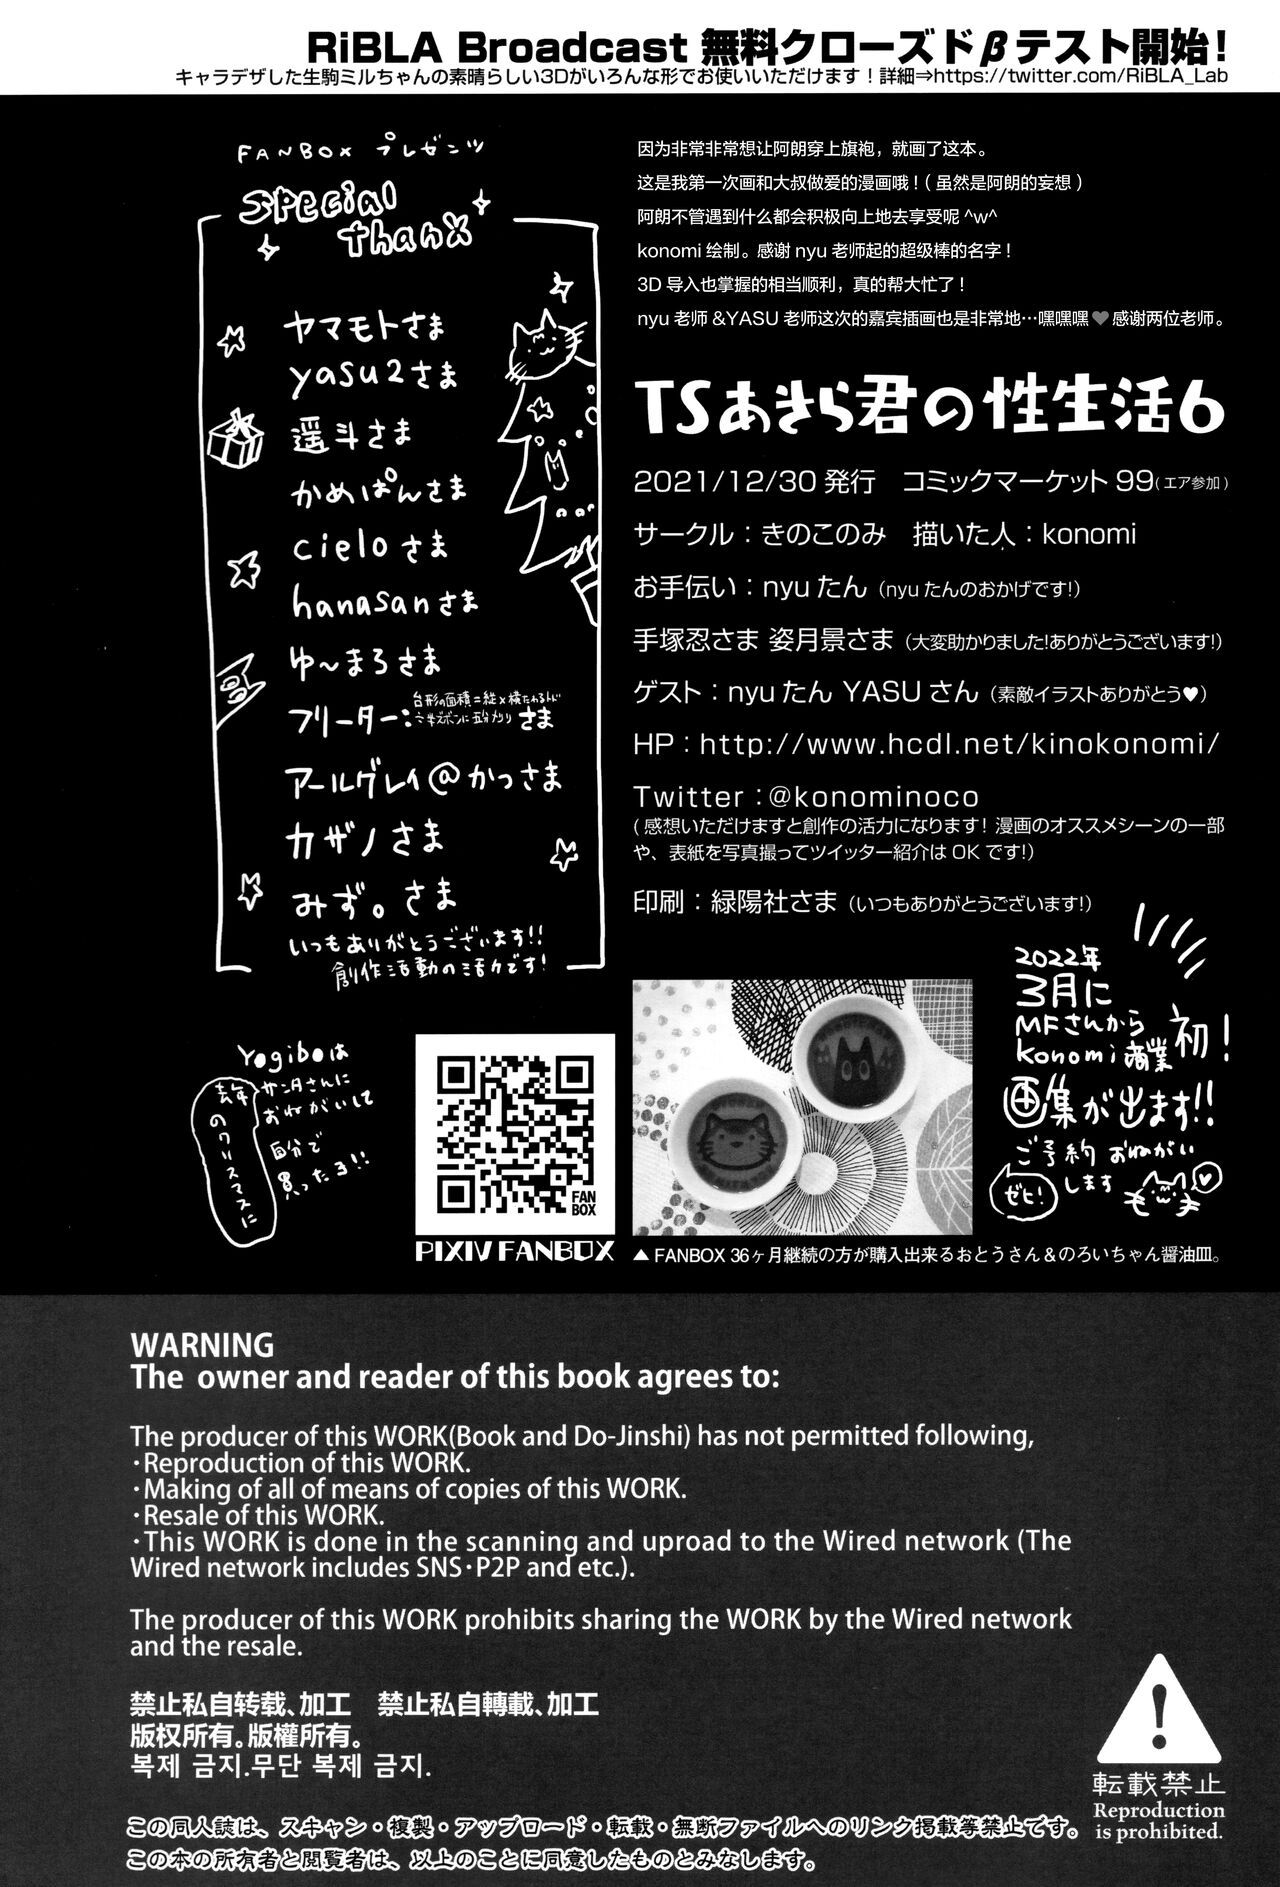 RiBLA Broadcast 無料クローズドβテスト開始！
キャラデザした生駒ミルちゃんの素晴らしい3Dがいろんな形でお使いいただけます！詳細⇒https://twitter.com/RiBLA_Lab
FANBOX プレゼンツ
special
thanX
ヤマモトさま
yasu2さま
遥斗さま
かめぱんさま
cieloさま
hanasanさま
ゆ〜まろさま
フリーター：台形の面積＝縦×横たわるトド
六半ズボンに五分刈りさま
アールグレイ@かっさま
カザノさま
みず。さま
いつもありがとうございます!!
創作活動の活力です!
因为非常非常想让阿朗穿上旗袍，就画了这本。
这是我第一次画和大叔做爱的漫画哦！(虽然是阿朗的妄想)
阿朗不管遇到什么都会积极向上地去享受呢^w^
konomi 绘制。感谢 nyu 老师起的超级棒的名字！
3D 导入也掌握的相当顺利，真的帮大忙了！
nyu 老师 &YASU 老师这次的嘉宾插画也是非常地…嘿嘿嘿♥感谢两位老师。
TSあきら君の性生活6
2021/12/30 発行　コミックマーケット 99(エア参加)
サークル：きのこのみ　描いた人：konomi
お手伝い：nyuたん（nyuたんのおかげです!）
手塚忍さま 姿月景さま（大変助かりました!ありがとうございます!）
ゲスト：nyuたん YASUさん（素敵イラストありがとう♥）
HP：http://www.hcdl.net/kinokonomi/
Twitter：@konominoco
(感想いただけますと創作の活力になります！漫画のオススメシーンの一部
や、表紙を写真撮ってツイッター紹介は OK です!)
印刷：緑陽社さま（いつもありがとうございます!）
2022年
3月に
MFさんから
konomi商業初！
画集が出ます!!
ご予約おねがい
します
ゼヒ!
Yogiboは
去年のクリスマスに
サンタさんに
おねがいして
自分で
買ったヨ!!
FAN
BOX
PIXIV FANBOX
▲ FANBOX 36ヶ月継続の方が購入出来るおとうさん＆のろいちゃん醤油皿。
WARNING
The owner and reader of this book agrees to:
The producer of this WORK(Book and Do-Jinshi) has not permitted following,
・Reproduction of this WORK.
・Making of all of means of copies of this WORK.
・Resale of this WORK.
・This WORK is done in the scanning and uproad to the Wired network (The
Wired network includes SNS・P2P and etc.).
The producer of this WORK prohibits sharing the WORK by the Wired network
and the resale.
禁止私自转载、加工　禁止私自轉載、加工
版权所有。版權所有。
복제 금지.무단 복제 금지.
転載禁止
Reproduction
is prohibited.
この同人誌は、スキャン・複製・アップロード・転載・無断ファイルへのリンク掲載等禁止です。
この本の所有者と閲覧者は、以上のことに同意したものとみなします。